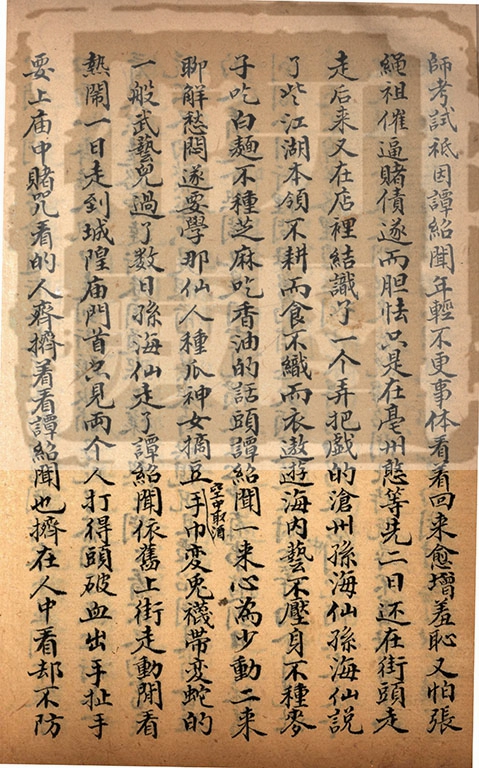 師考試祇因譚紹聞年輕不更事体看着回来愈增羞恥又怕張
繩祖催逼賭債遂而胆怯只是在亳州憨等先二日还在街頭走
走后来又在店裡結識了一个弄把戲的滄州孫海仙孫海仙説
了些江湖本領不耕而食不織而衣遨遊海内藝不壓身不種麥
子吃白麵不種芝麻吃香油的話頭譚紹聞一来心為少動二来
聊解愁悶遂要學那仙人種瓜神女摘豆手巾変兎襪帶変蛇的
空中取酒
一般武藝兒過了数日孫海仙走了譚紹聞依舊上街走動閒看
熱鬧一日走到城隍庙門首只見両个人打得頭破血出手扯手
要上庙中賭咒看的人齊擠着看譚紹聞也擠在人中看却不防